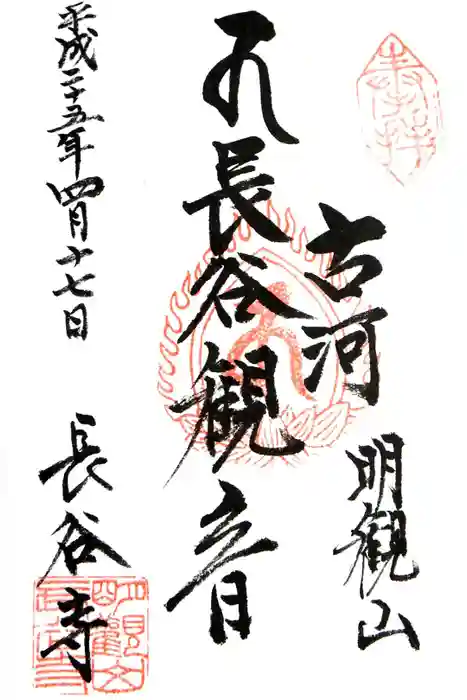 奉拝
明観山
古河
長谷観音
平成二十五年四月十七日
長谷寺